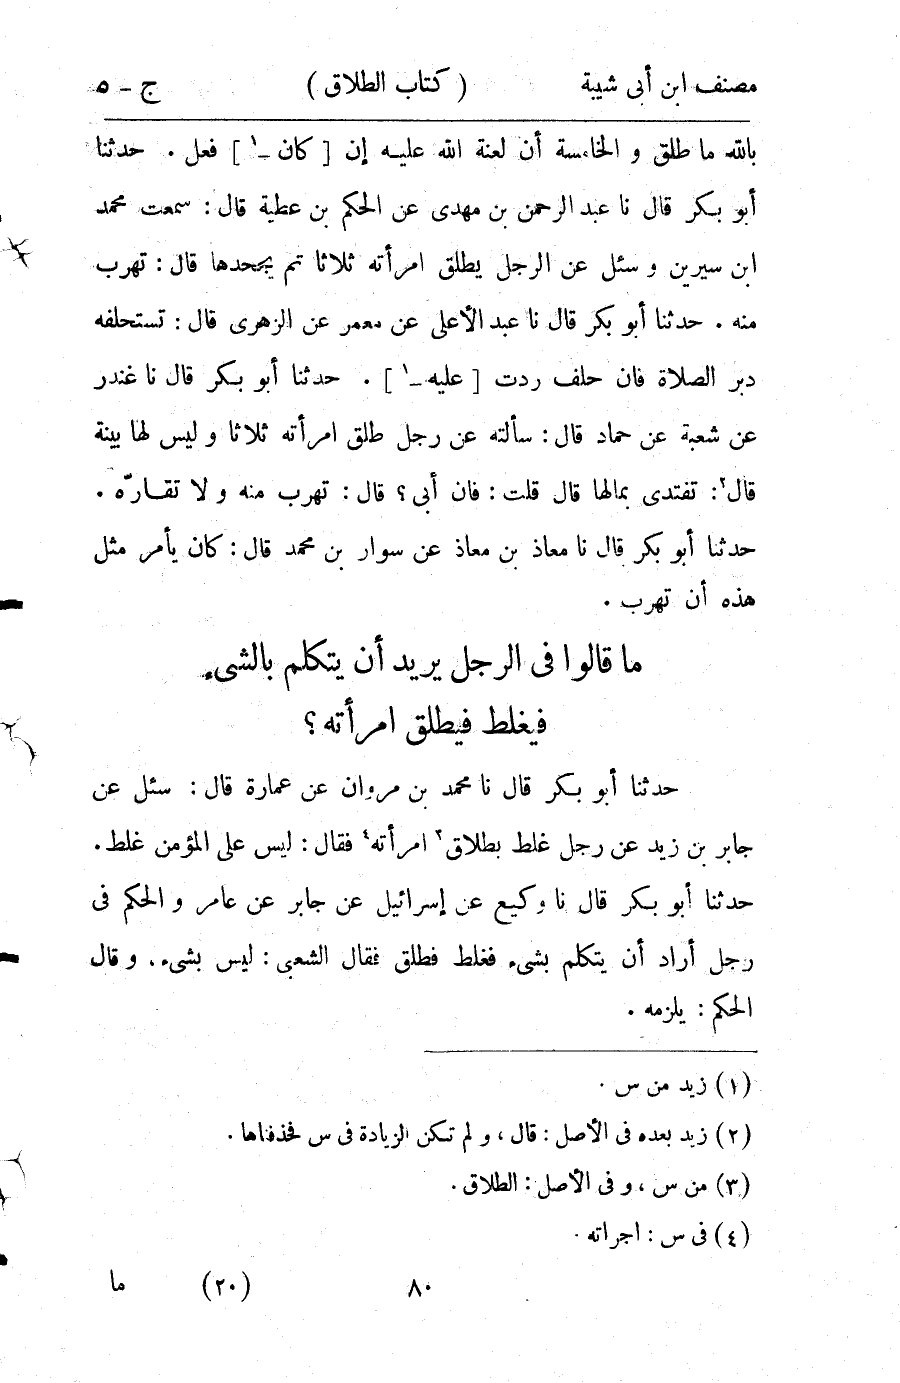 مصنف ابن أبى شيبة ( كتاب الطلاق ) ج - ٥
بالله ما طلق و الخامسة أن لعنة الله عليه إن [ كان -١ ] فعل . حدثنا
أبو بكر قال نا عبد الرحمن بن مهدى عن الحكم بن عطية قال : سمعت محمد
ابن سيرين و سئل عن الرجل يطلق امرأته ثلاثا ثم يجحدها قال : تهرب
منه . حدثنا أبو بكر قال نا عبد الأعلى عن معمر عن الزهرى قال : تستحلفه
دبر الصلاة فان حلف ردت [ عليه -١ ] . حدثنا أبو بكر قال نا غندر
عن شعبة عن حماد قال : سألته عن رجل طلق امرأته ثلاثا و ليس لها بينة
قال٢ : تفتدى بمالها قال قلت : فان أبى ؟ قال : تهرب منه و لا تقارّه .
حدثنا أبو بكر قال نا معاذ بن معاذ عن سوار بن محمد قال : كان يأمر مثل
هذه أن تهرب .
ما قالوا فى الرجل يريد أن يتكلم بالشىء
فيغلط فيطلق امرأته ؟
حدثنا أبو بكر قال نا محمد بن مروان عن عمارة قال : سئل عن
جابر بن زيد عن رجل غلط بطلاق٣ امرأته٤ فقال : ليس على المؤمن غلط .
حدثنا أبو بكر قال نا وكيع عن إسرائيل عن جابر عن عامر و الحكم فى
رجل أراد أن يتكلم بشىء فغلط فطلق فقال الشعبى : ليس بشىء . و قال
الحكم : يلزمه .
(١) زيد من س .
(٢) زيد بعده فى الأصل : قال ، و لم تكن الزيادة فى س فحذفناها .
(٣) من س ، و فى الأصل : الطلاق .
(٤) فى س : اجراته .
٨٠ (٢٠) ما